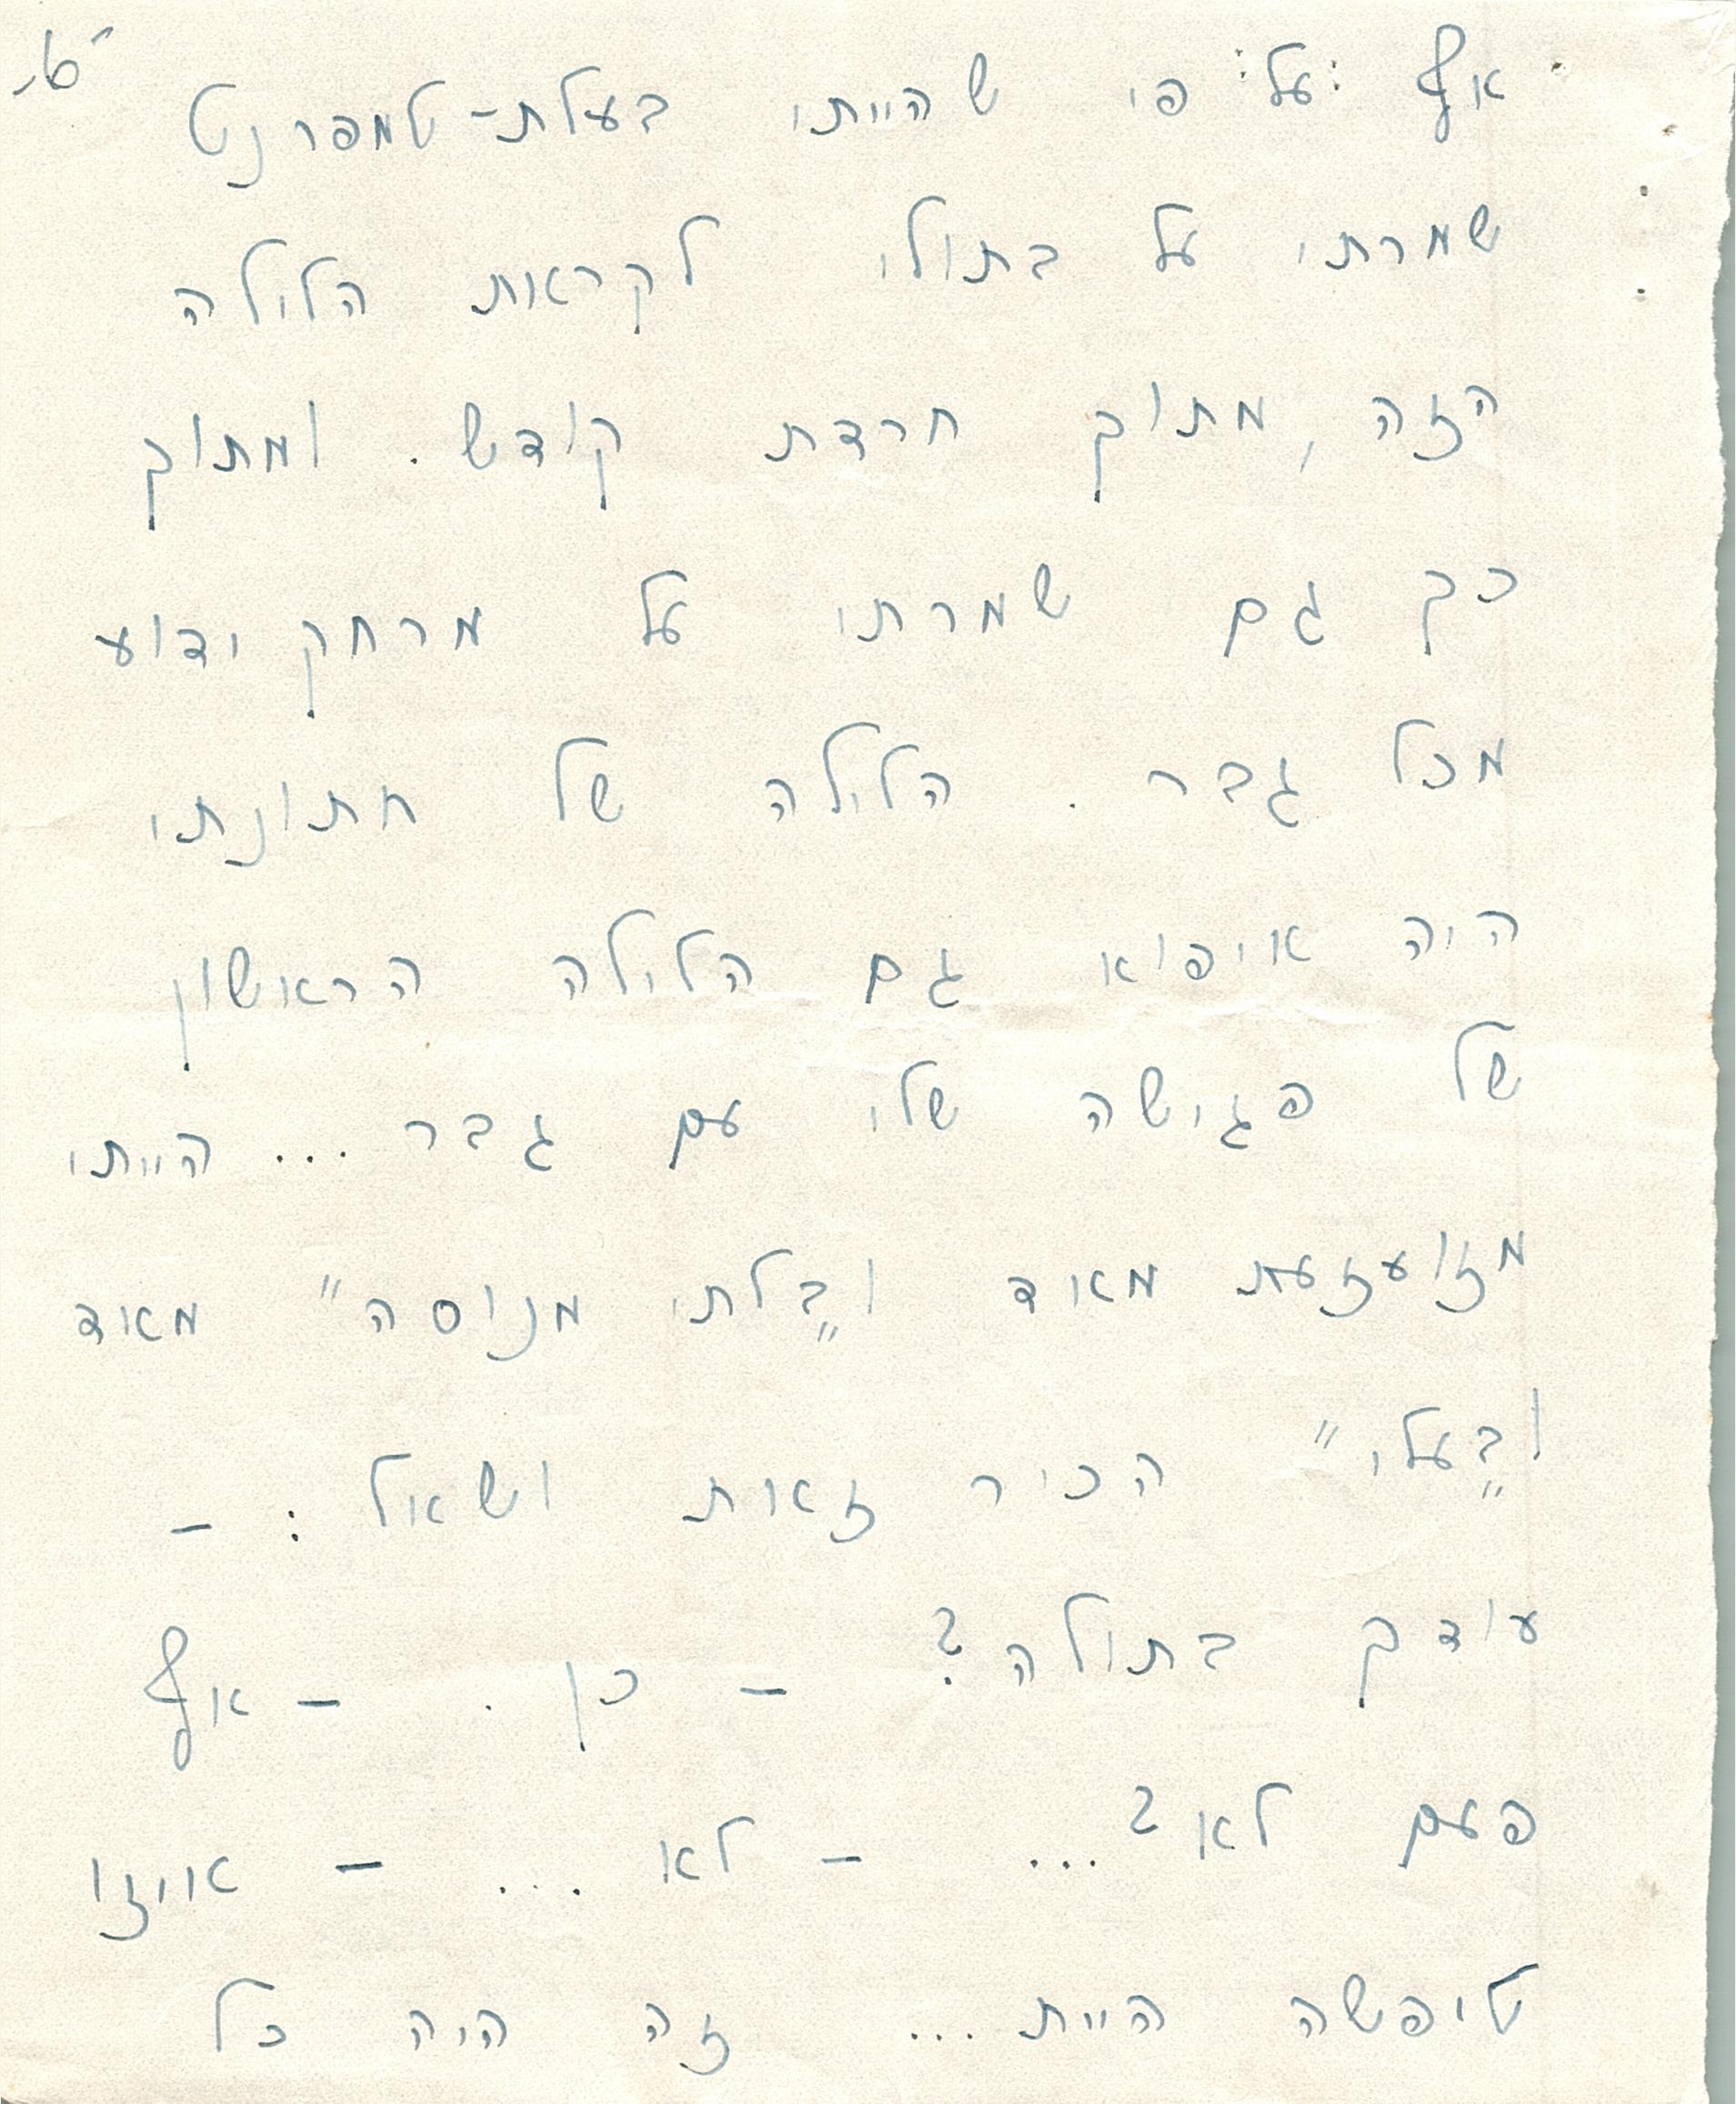 ט-
אף על פי שהייתי בעלת-טמפרנט
שמרתי על בתולי לקראת הלילה
הזה, מתוך חרדת קודש. ומתוך
כך גם שמרתי על מרחק ידוע
מכל גבר. הלילה של חתונתי
היה איפוא גם הלילה הראשון
של פגישה שלי עם גבר... הייתי
מזועזעת מאוד ו„בלתי מנוסה" מאוד
ו„בעלי" הכיר זאת ושאל: -
עודך בתולה? - כן. - אף
פעם לא?... - לא... - איזו
טיפשה היית... זה היה כל